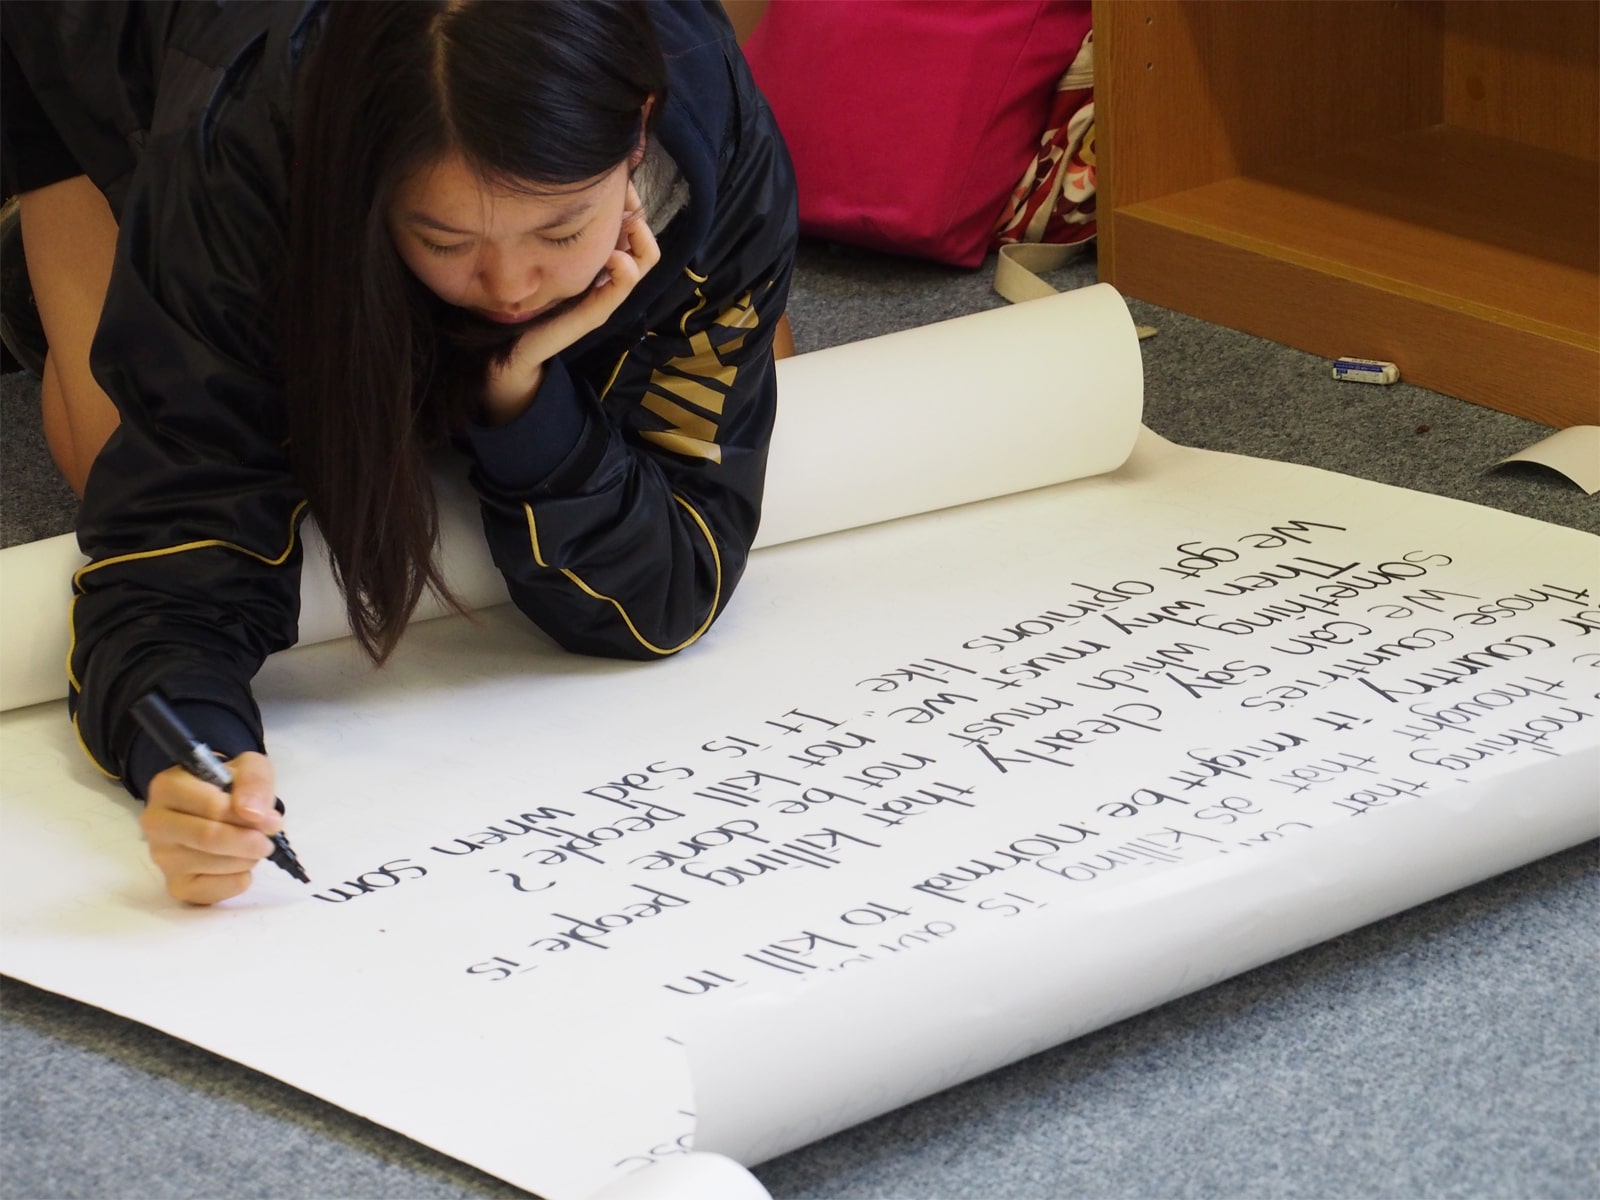 nothing that
thought that as killing is
our country it might be normal to kill in
those countries
We can say clearly that killing people is
something which must not be done
Then why must we "not kill people"?
We got opinions like It is sad when som